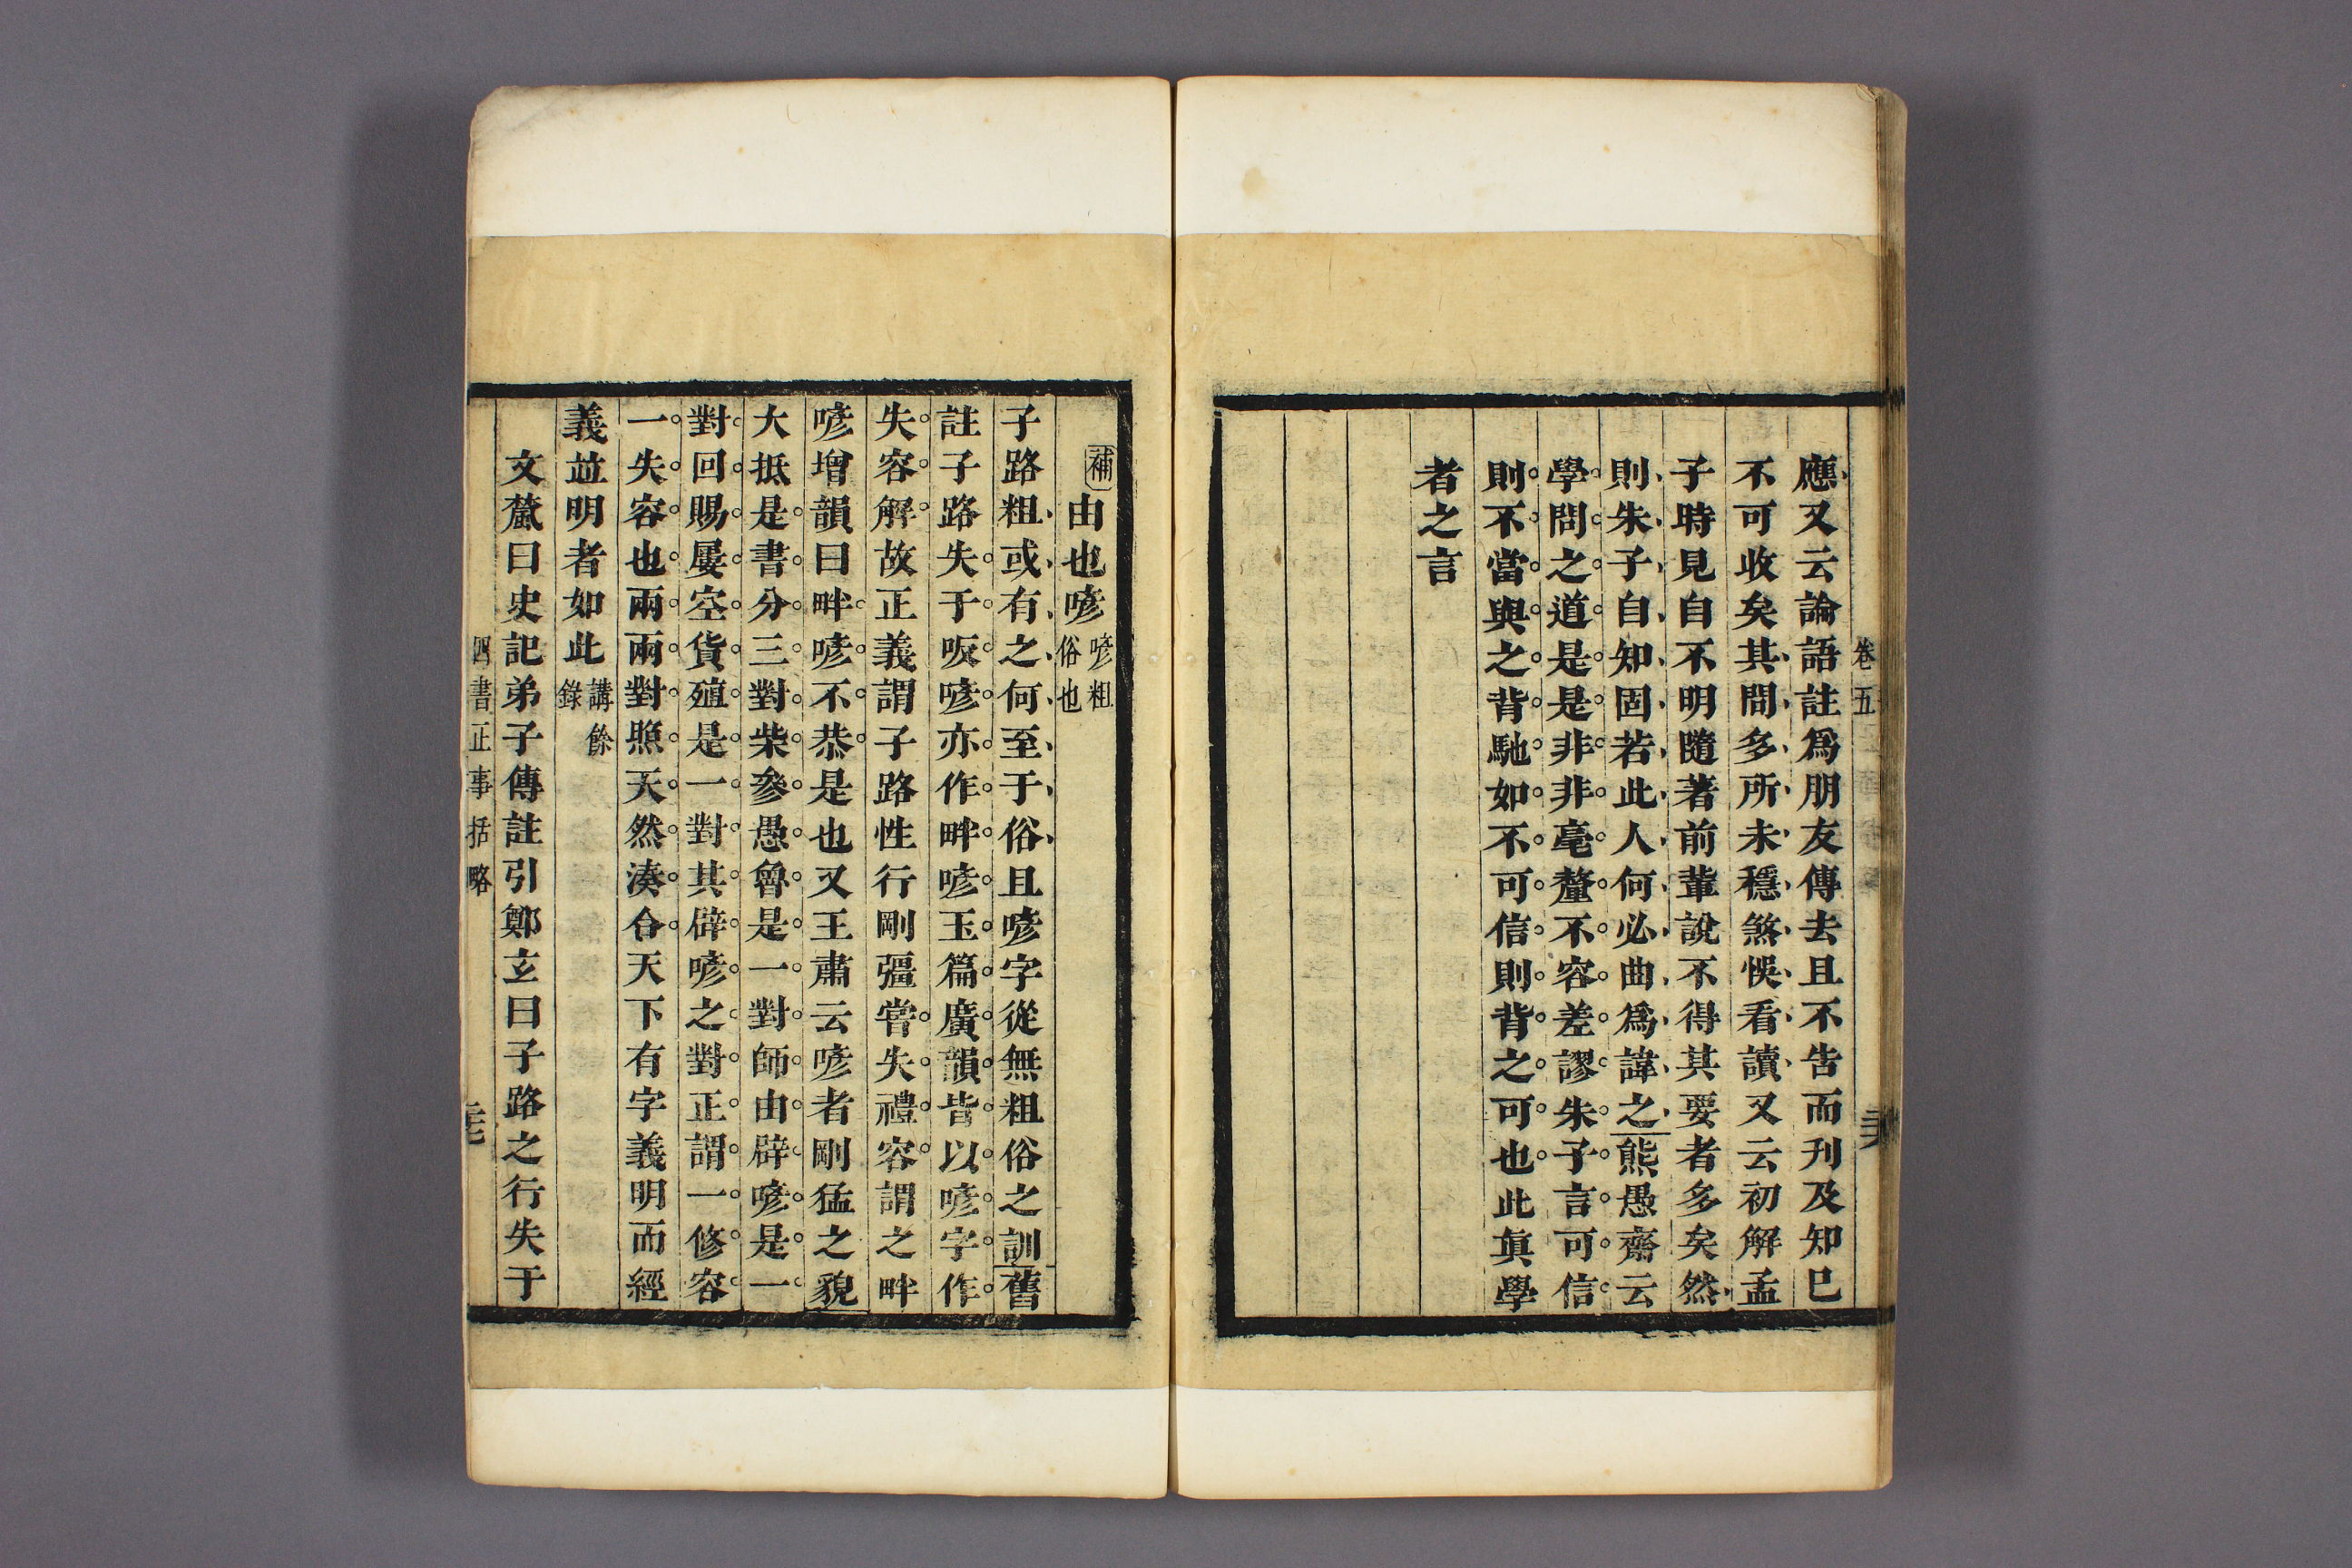 卷五
應又云論語註爲朋友傳去且不告而刋及知巳
不可收矣其間多所未穩煞悞看讀又云初解孟
子時見自不明隨著前輩說不得其要者多矣然
則朱子自知固若此人何必曲爲諱之熊愚齋云
學問之道是是非非毫釐不容差謬朱子言可信
則不當與之背馳如不可信則背之可也此眞學
者之言
補由也喭喭粗俗也
子路粗或有之何至于俗且喭字從無粗俗之訓舊
註子路失于㕭喭亦作畔喭玉篇廣韻皆以喭字作
失容解故正義謂子路性行剛彊嘗失禮容謂之畔
喭增韻曰畔喭不恭是也又王肅云喭者剛猛之貌
大抵是書分三對柴參愚魯是一對師由辟喭是一
對回賜屢空貨殖是一對其辟喭之對正謂一修容
一失容也兩兩對照天然湊合天下有字義明而經
義並明者如此講餘錄
文虨曰史記弟子傳註引鄭玄曰子路之行失于
四書正事括略